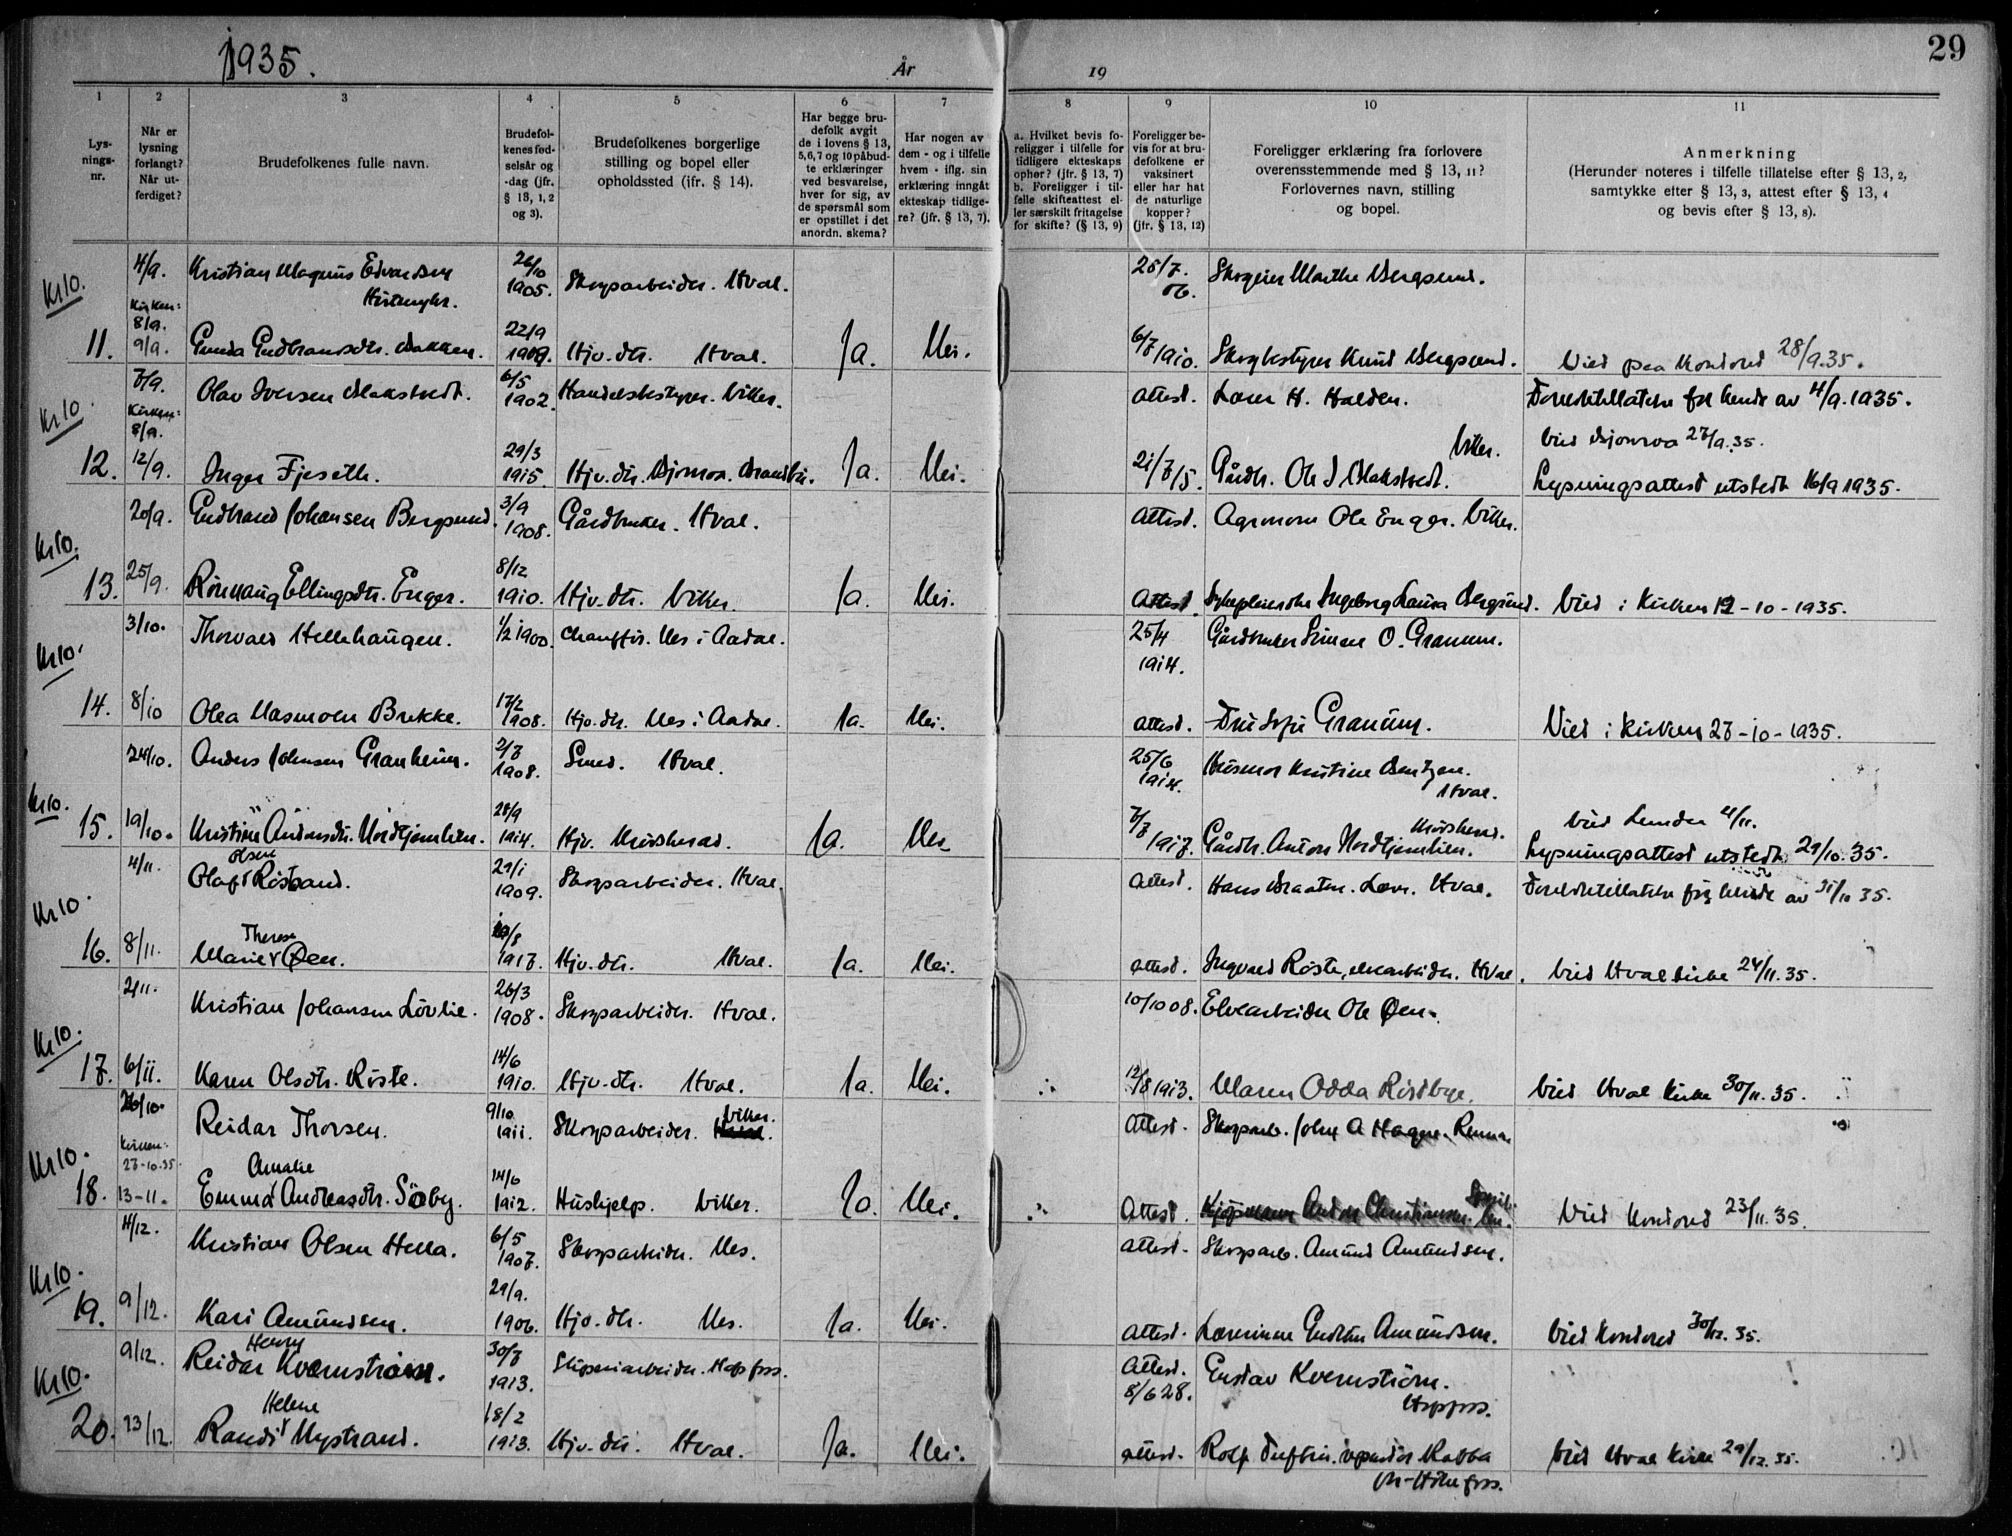 1935.
År
19
29
1
2
3
4
5
6
7
8
9
10
11
Lys-
nings-
nr.
Når er
lysning
forlangt?
Når ut-
ferdiget?
Brudefolkenes fulle navn.
Brudefol-
kenes fød-
selsår og
-dag (jfr.
§ 13, 1, 2
og 3).
Brudefolkenes borgerlige
stilling og bopel eller
opholdssted (jfr. § 14).
Har begge bru-
defolk avgit
de i lovens § 13,
5, 6, 7 og 10 påbud-
te erklæringer
ved besvarelse,
hver for sig, av
de spørsmål som
er opstillet i det
anordn. skema?
Har nogen av
dem - og i tilfelle
hvem - iflg. sin
erklæring inngåt
ekteskap tidlige-
re? (jfr. § 13, 7).
a. Hvilket bevis fo-
religger i tilfelle for
tidligere ekteskaps
ophør? (jfr. § 13, 7)
b. Foreligger i til-
felle skifteattest el-
ler særskilt fritagelse
for skifte? (§ 13, 9)
Foreligger be-
vis for at bru-
defolkene er
vaksinert
eller har hat
de naturlige
kopper?
(jfr. § 13, 12)
Foreligger erklæring fra forlovere
overensstemmende med § 13, 11?
Forlovernes navn, stilling
og bopel.
Anmerkning
(Herunder noteres i tilfelle tillatelse efter § 13, 2,
samtykke efter § 13, 3, attest efter § 13, 4
og bevis efter § 13, 8).
Kr 10. 4/9. Kristian Magnus Edvardsen 26/10 1905. Skogsarbeider. Hval. 25/7. 06. Skogeier Marthe Bergsund.
Kirken: 8/9.
11. 9/9. Gunda Gudbrandsdtr. Bakken. 22/9 1909. Hjv. dtr. Hval. Ja. Nei. 6/7 1910. Skogbestyrer Knud Bergsund. Vied paa kontoret 28/9.35.
Kr 10. 7/9. Olav Iversen Blakstvedt. 6/5 1902. Handelsbestyrer. Viker. attest. Lærer H. Halden. Foreldretillatelse for hende av 4/9.1935.
Kirken: 8/9. Viker. Vied Bjoneroa 27/9.35.
12. 12/9. Inger Fjeseth. 29/3 1915. Hjv. dtr. Bjoneroa. Brandbu. Ja. Nei. 21/7 15. Gårdbr. Ole I Blakstvedt. Lysningsattest utstedt 16/9 1935.
Kr 10. 20/9. Gudbrand Johansen Bergsund. 3/9 1908. Gårdbruker. Hval. Attest. Agronom Ole Enger. Viker.
13. 25/9. Rønnaug Ellingsdtr. Enger. 8/12 1910. Hjv. dtr. Viker. Ja. Nei. Attest. Sykepleierske Ingeborg Laura Bergsund. Vied i Kirken 12-10-1935.
Kr 10. 3/10. Thorvald Hellehaugen. 1/2 1900. Chauffør. Nes i Aadal. 25/4 1914. Gårdbruker Simen O. Granum.
14. 8/10 Olea Masmoen Brekke. 17/2 1908. Hjv. dtr. Nes i Aadal. Ja. Nei. attest. Fru Sofie Granum. Vied i kirken 27-10-1935.
24/10. Anders Johnsen Granheim. 2/7 1908. Smed. Hval. 25/6 1914. Husmor Kristine Bentzen. Hval.
Kr 10. 15. 19/10. Kristine Andersdtr. Nordtjernlien. 28/9 1914. Hjv. Krødsherad. Ja. Nei 7/7 1917. Gårdbr. Anton Nordtjernlien. Krødsherad. Vied Lunder 4/11.
Lysningsattest utstedt 29/10.35.
4/11. Olaf Olsen Röstrand. 29/1 1909. Skogsarbeider. Hval. attest. Hans Braaten. Lærer. Hval. Foreldretillatelse for hende av 31/10 35.
Kr 10. 16. 8/11. Marie Therese Øen. /8 1917. Hjv. dtr. Hval. Ja. Nei. attest. Ingvald Röste, elvearbeider. Hval. Vied Hval kirke 24/11.35.
2/11. Kristian Johansen Lövlie. 26/3 1908. Skogsarbeider. Hval. 10/10 08. Elvearbeider Ole Øen.
Kr 10. 17. 6/11. Karen Olsdtr. Röste. 14/6 1910. Hjv. dtr. Hval. Ja. Nei. 12/8 1913. Maren Odda Ristbye. Vied Hval kirke 30/11.35.
26/10. Reidar Thorsen. 9/10 1911. Skogsarbeider. Viker. Attest. Skogsarb. John A Hagen.
Kirken: 27-10-35
Kr 10. 18. 13-11. Emma Amalie Andreasdtr. Söby. 14/6 1912. Hushjelp. Viker. Ja. Nei. Attest. Kjøpmann Anton Christiansen. Vied kontoret 23/11.35.
4/12. Kristian Olsen Hella. 6/5 1907. Skogsarbeider. Nes. attest. Skogsarb. Amund Amundsen.
Kr 10. 19. 9/12. Kari Amundsen. 29/9. 1906. Hjv. dtr. Nes. Ja. Nei. attest. Lærerinne Gudrun Amundsen. Vied kontoret 30/12.35.
9/12. Reidar Henry Kvernström. 30/7 1913. Sliperiarbeider. Hofsfoss. Attest. 8/6 28. Gustav Kvernström. Hofsfoss.
Kr 10. 20. 23/12. Randi Helene Nystrand. 18/2 1913. Hjv. dtr. Hval. Ja. Nei. attest. Rolf Tuftin. Vied Hval kirke 29/12.35.